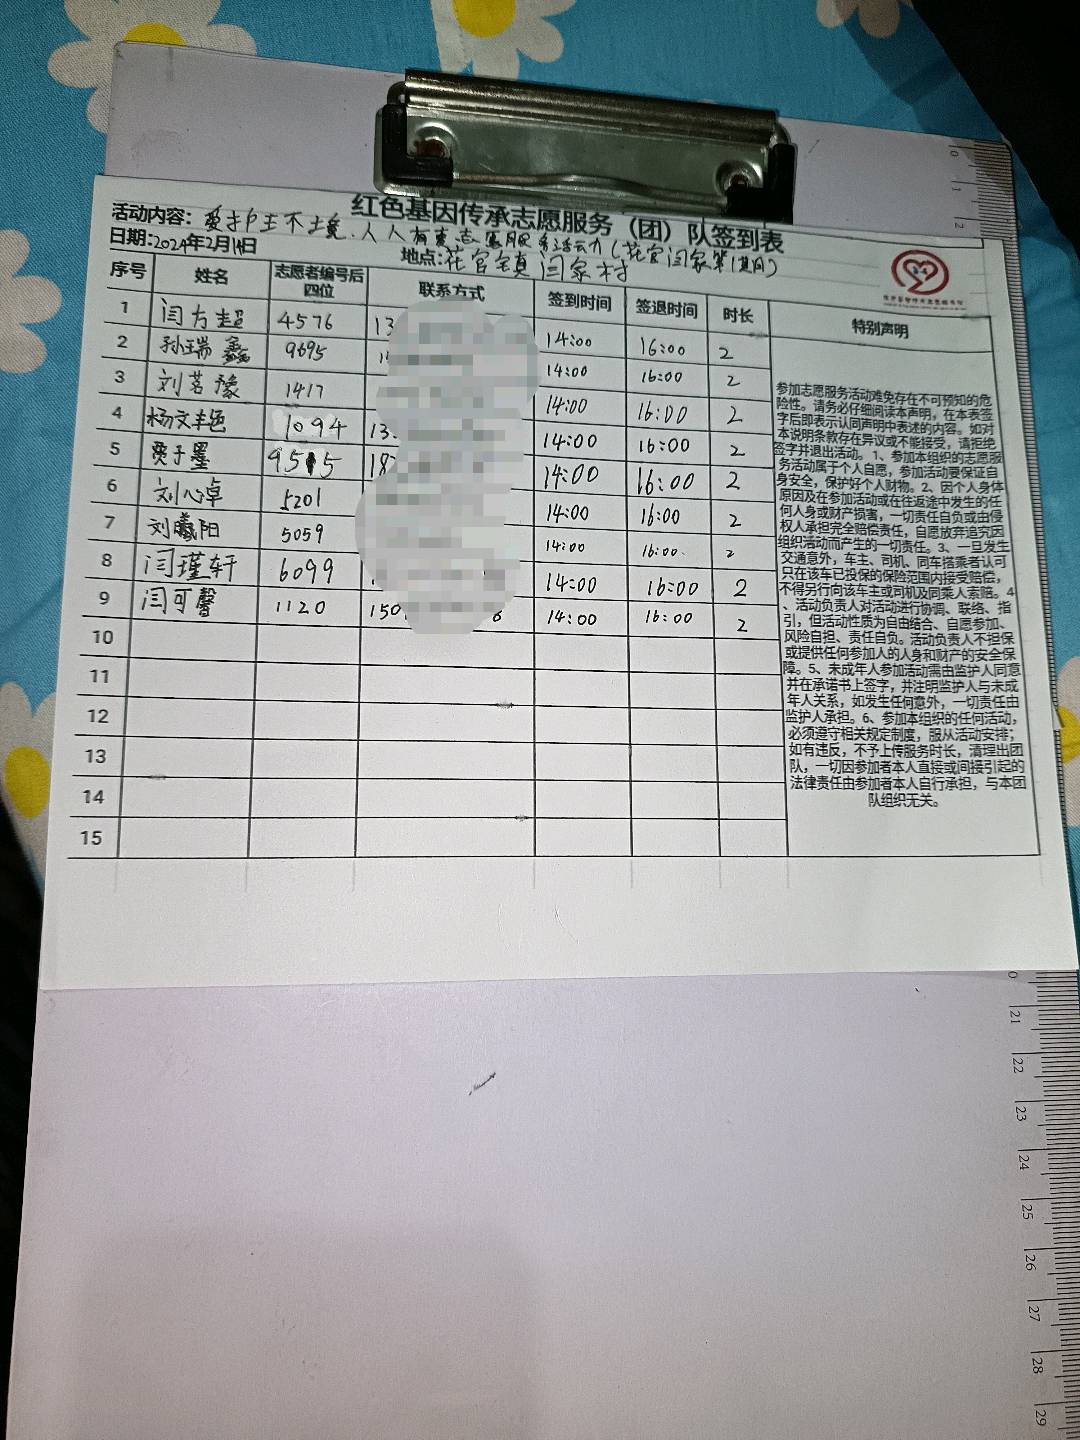 红色基因传承志愿服务（团）队签到表
活动内容：爱护生态环境，人人有责志愿服务活动（花官闫家第1期）
日期:2024年2月14日
地点:花官镇闫家村
序号 姓名 志愿者编号后四位 联系方式 签到时间 签退时间 时长 特别声明
1 闫方超 4576 13 14:00 16:00 2
2 孙瑞鑫 9695 14:00 16:00 2
3 刘茗豫 1417 14:00 16:00 2
4 杨文艳 1094 13 14:00 16:00 2
5 贾子墨 9515 18 14:00 16:00 2
6 刘心卓 5201 14:00 16:00 2
7 刘曦阳 5059 14:00 16:00 2
8 闫瑾轩 6099 14:00 16:00 2
9 闫可馨 1120 150 8 14:00 16:00 2
10
11
12
13
14
15
参加志愿服务活动难免存在不可预知的危
险性。请务必仔细阅读本声明，在本表签
字后即表示认同声明中表述的内容。如对
本说明条款存在异议或不能接受，请拒绝
签字并退出活动。1、参加本组织的志愿服
务活动属于个人自愿，参加活动要保证自
身安全，保护好个人财物。2、因个人身体
原因及在参加活动或在往返途中发生的任
何人身或财产损害，一切责任自负或由侵
权人承担完全赔偿责任，自愿放弃追究因
组织活动而产生的一切责任。3、一旦发生
交通意外，车主、司机、同车搭乘者认可
只在该车已投保的保险范围内接受赔偿，
不得另行向该车主或司机及同乘人索赔。4
、活动负责人对活动进行协调、联络、指
引，但活动性质为自由结合、自愿参加、
风险自担、责任自负。活动负责人不担保
或提供任何参加人的人身和财产的安全保
障。5、未成年人参加活动需由监护人同意
并在承诺书上签字，并注明监护人与未成
年人关系，如发生任何意外，一切责任由
监护人承担。6、参加本组织的任何活动，
必须遵守相关规定制度，服从活动安排；
如有违反，不予上传服务时长，清理出团
队，一切因参加者本人直接或间接引起的
法律责任由参加者本人自行承担，与本团
队组织无关。
0
1
2
21
22
23
24
25
26
27
28
29